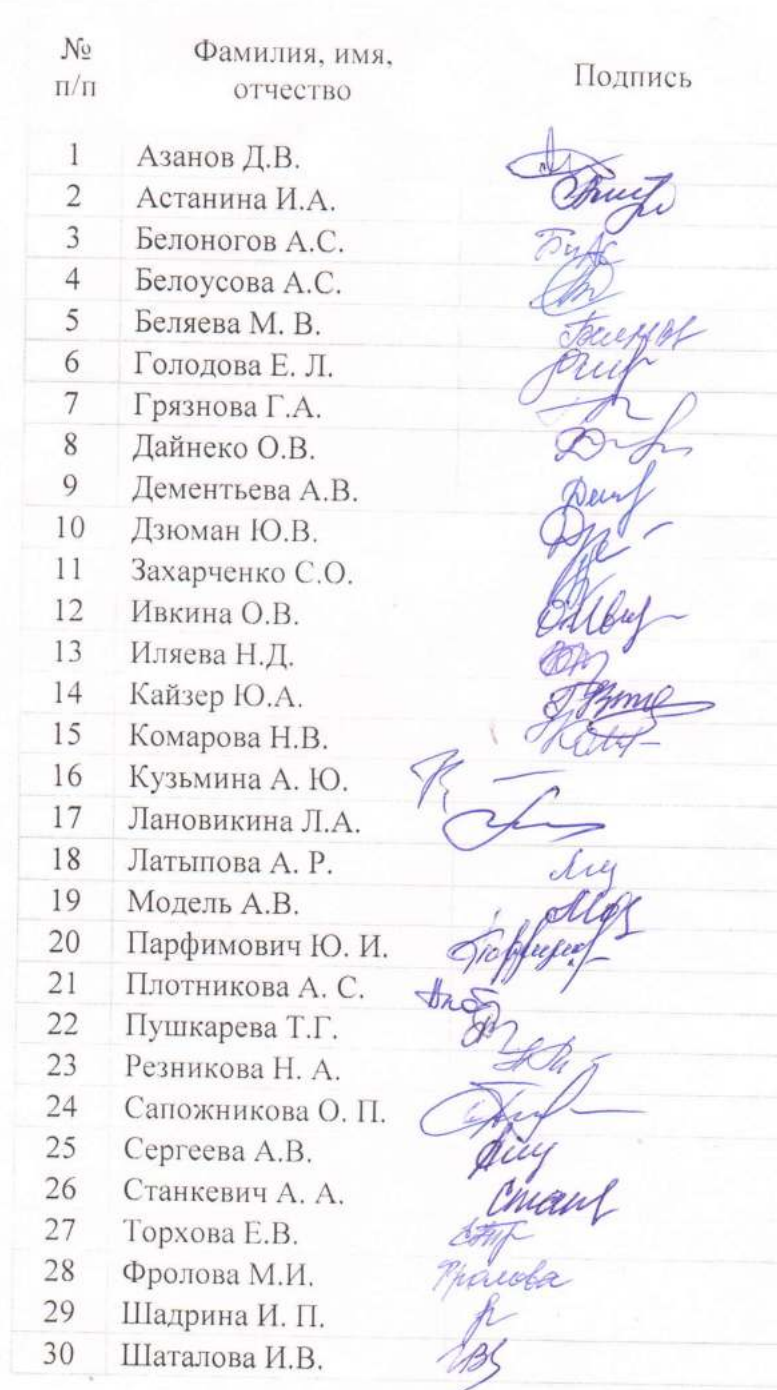 № Фамилия, имя, Подпись
п/п отчество
1 Азанов Д.В.
2 Астанина И.А.
3 Белоногов А.С.
4 Белоусова А.С.
5 Беляева М. В.
6 Голодова Е. Л.
7 Грязнова Г.А.
8 Дайнеко О.В.
9 Дементьева А.В.
10 Дзюман Ю.В.
11 Захарченко С.О.
12 Ивкина О.В.
13 Иляева Н.Д.
14 Кайзер Ю.А.
15 Комарова Н.В.
16 Кузьмина А. Ю.
17 Лановикина Л.А.
18 Латыпова А. Р.
19 Модель А.В.
20 Парфимович Ю. И.
21 Плотникова А. С.
22 Пушкарева Т.Г.
23 Резникова Н. А.
24 Сапожникова О. П.
25 Сергеева А.В.
26 Станкевич А. А.
27 Торхова Е.В.
28 Фролова М.И. Фролова
29 Шадрина И. П.
30 Шаталова И.В.